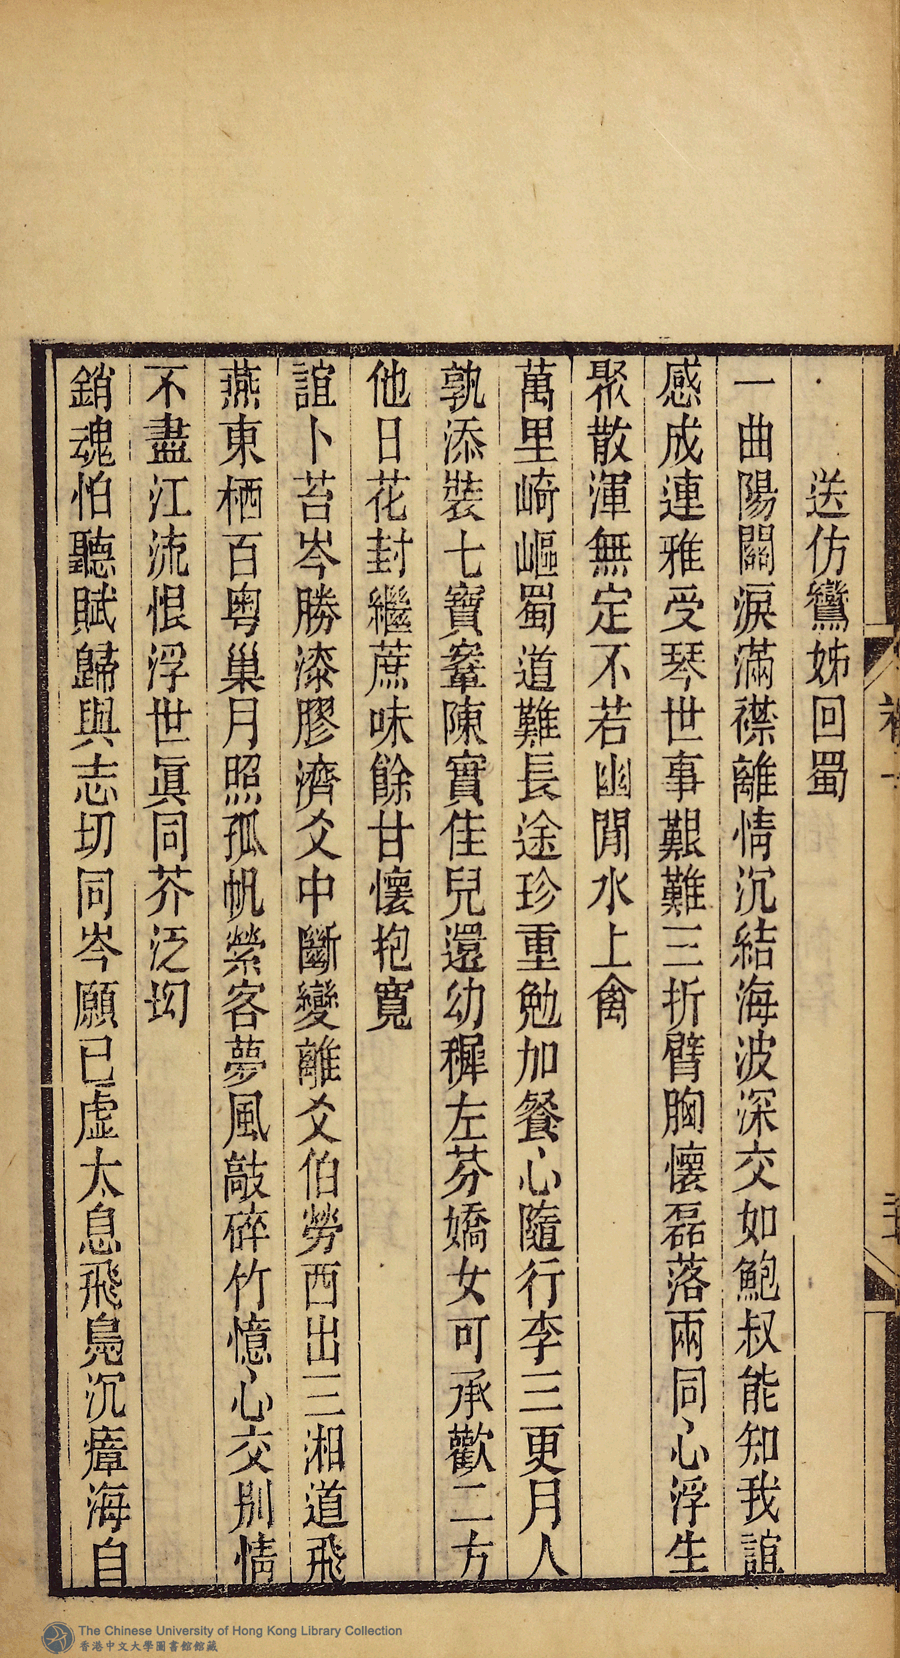 送仿鸞姊回蜀
一曲陽關淚滿襟離情沉結海波深交如鮑叔能知我誼
感成連雅受琴世事艱難三折臂胸懷磊落兩同心浮生
聚散渾無定不若幽閒水上禽
萬里崎嶇蜀道難長途珍重勉加餐心隨行李三更月人
孰添裝七寶鞌陳實佳兒還幼穉左芬嬌女可承歡二方
他日花封繼蔗味餘甘懷抱寬
誼卜苔岑勝漆膠濟爻中斷變離爻伯勞西出三湘道飛
燕東栖百粵巢月照孤帆縈客夢風敲碎竹憶心交別情
不盡江流恨浮世眞同芥泛坳
銷魂怕聽賦歸與志切同岑願已虛太息飛鳧沉瘴海自
The Chinese University of Hong Kong Library Collection
香港中文大學圖書館館藏